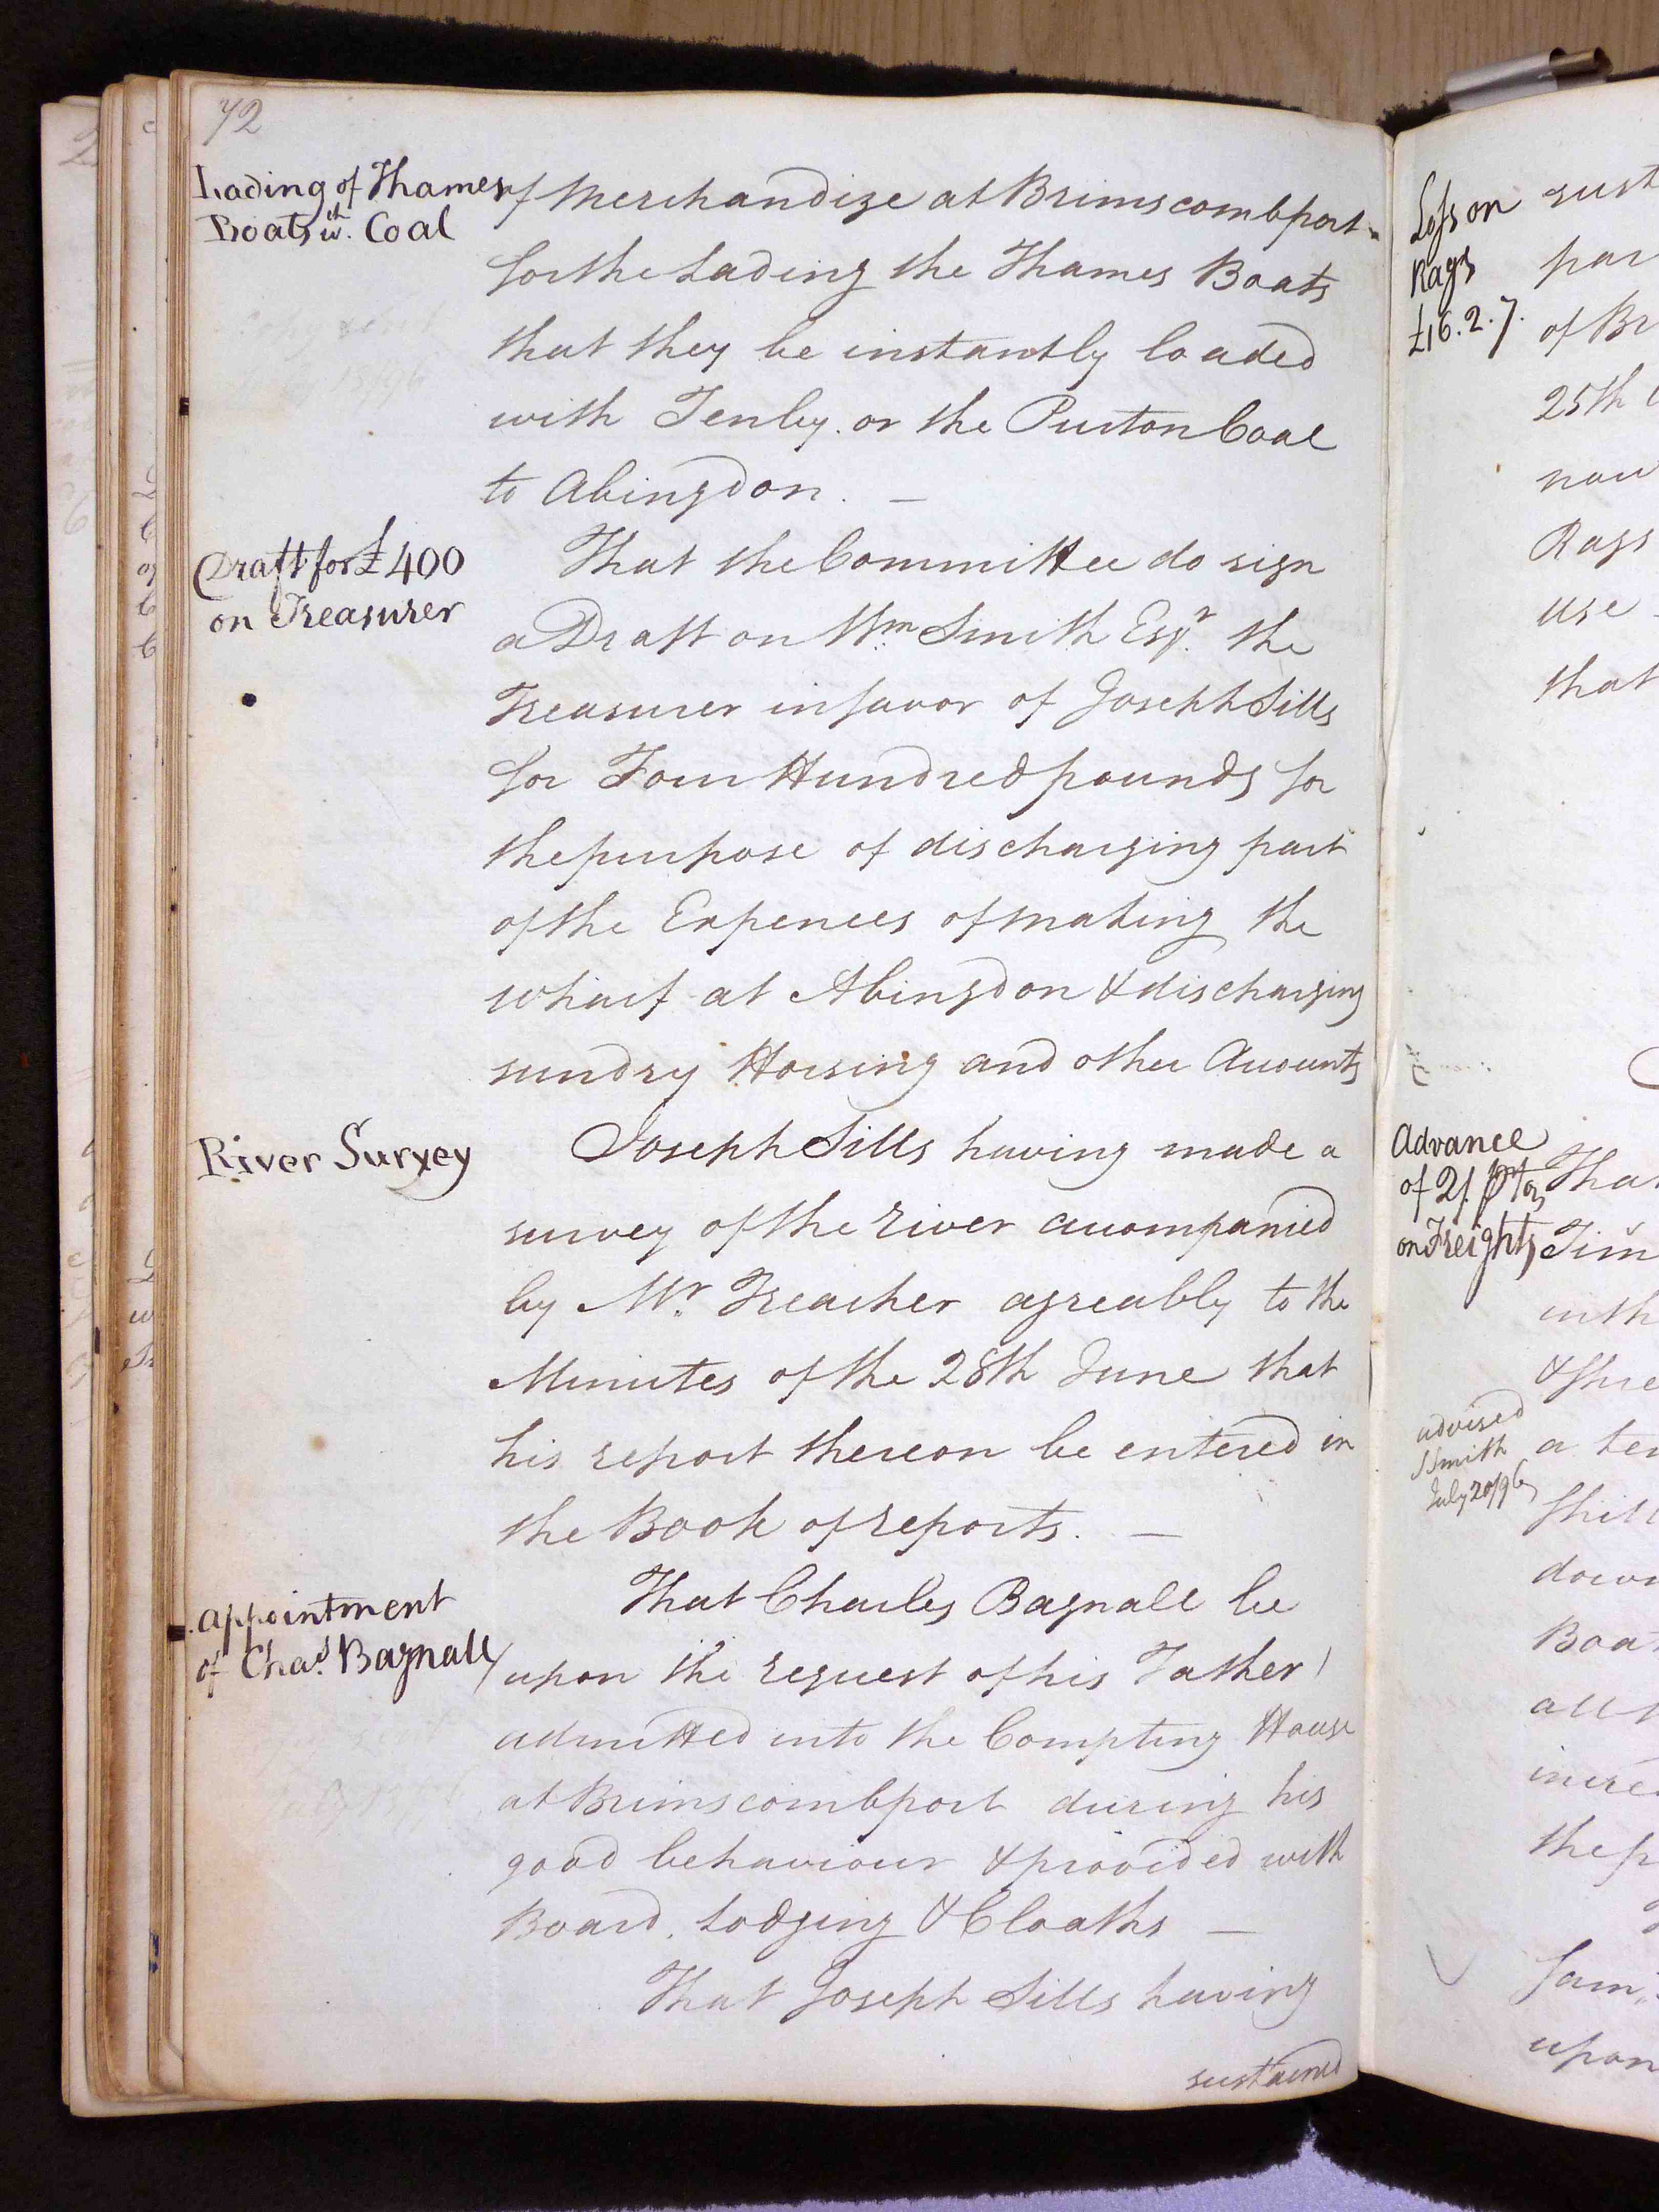 72
Lading of Thames
Boats wt. Coal
of Merchandize at Brimscombport
for the Lading the Thames Boats
that they be instantly loaded
with Tenby or the Purton Coal
to Abingdon. —
Draft for £400
on Treasurer
That the Committee do sign
a Draft on Wm. Smith Esqr. the
Treasurer in favor of Joseph Sills
for Four Hundred pounds for
the purpose of discharging part
of the Expences of making the
Wharf at Abingdon & discharging
sundry Horsing and other Accounts
River Survey
Joseph Sills having made a
survey of the River accompanied
by Mr. Treacher agreably to the
Minutes of the 28th June that
his report thereon be entered in
the Book of reports. —
appointment
of Chas. Bagnall
That Charles Bagnall be
(upon the request of his Father)
admitted into the Compting House
at Brimscombport during his
good behaviour & provided with
Board, Lodging & Cloaths —
That Joseph Sills having
sustained
Loss on
Rags
£16.2.7.
sust
par
of Br
25th
now
Rags
use
that
Advance
of 2/. pr Ton
on Freights
Tha
Tim
in th
advised
J Smith
July 20/96
a te
shill
down
Boa
all
incre
the p
Sam
upon